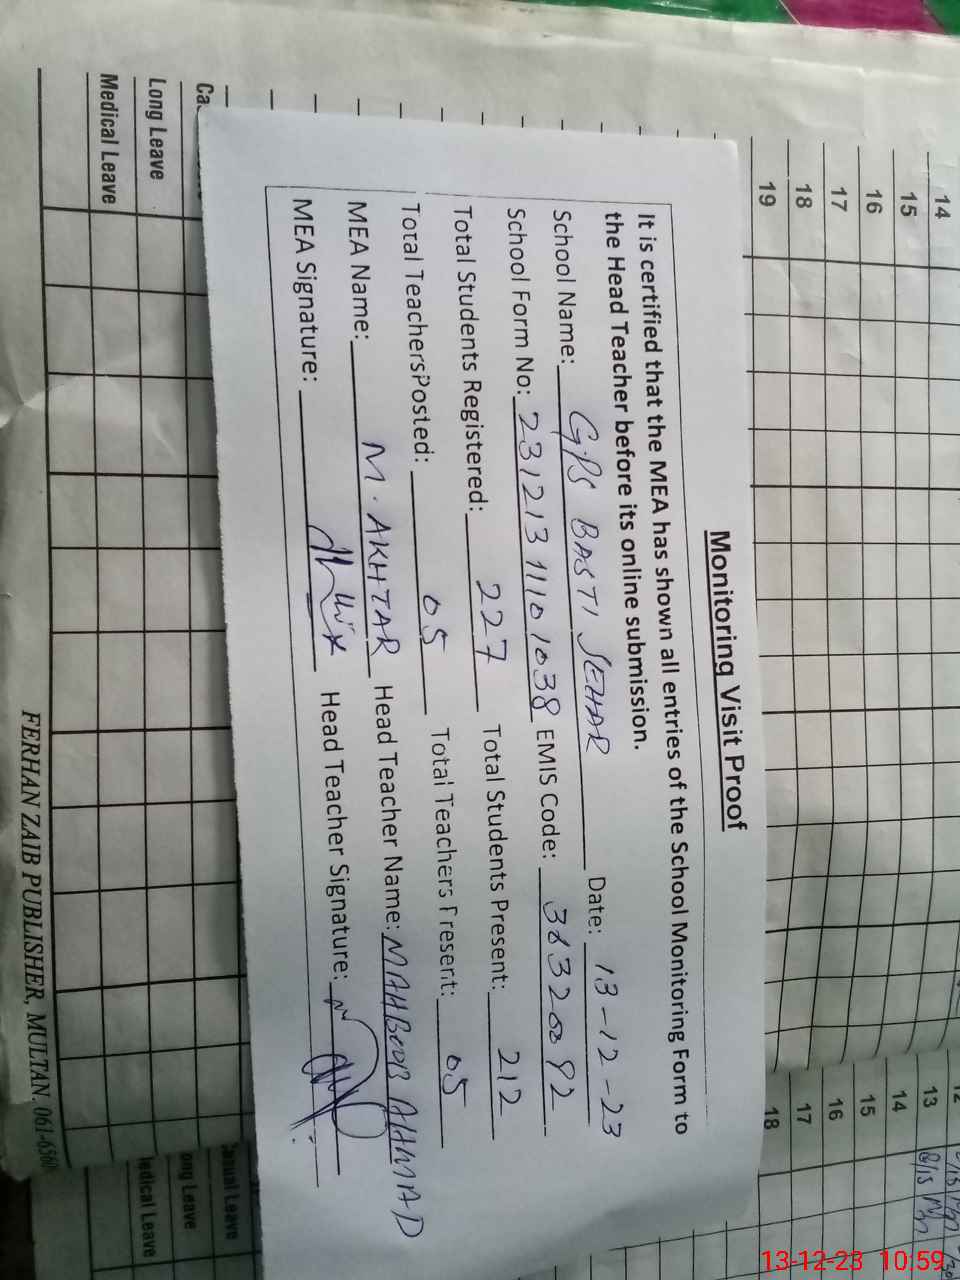 Monitoring Visit Proof
It is certified that the MEA has shown all entries of the School Monitoring Form to
the Head Teacher before its online submission.
School Name: GPS BASTI SEHAR Date: 13-12-23
School Form No: 23121311101038 EMIS Code: 36320092
Total Students Registered: 227 Total Students Present: 212
Total Teachers Posted: 05 Total Teachers Present: 05
MEA Name: M. AKHTAR Head Teacher Name: MAHBOOB AHMAD
MEA Signature: Head Teacher Signature:
14
15
16
17
18
19
Long Leave
Medical Leave
FERHAN ZAIB PUBLISHER, MULTAN. 061-656
12
13
14
15
16
17
18
asual Leave
ong Leave
edical Leave
13-12-23 10:59